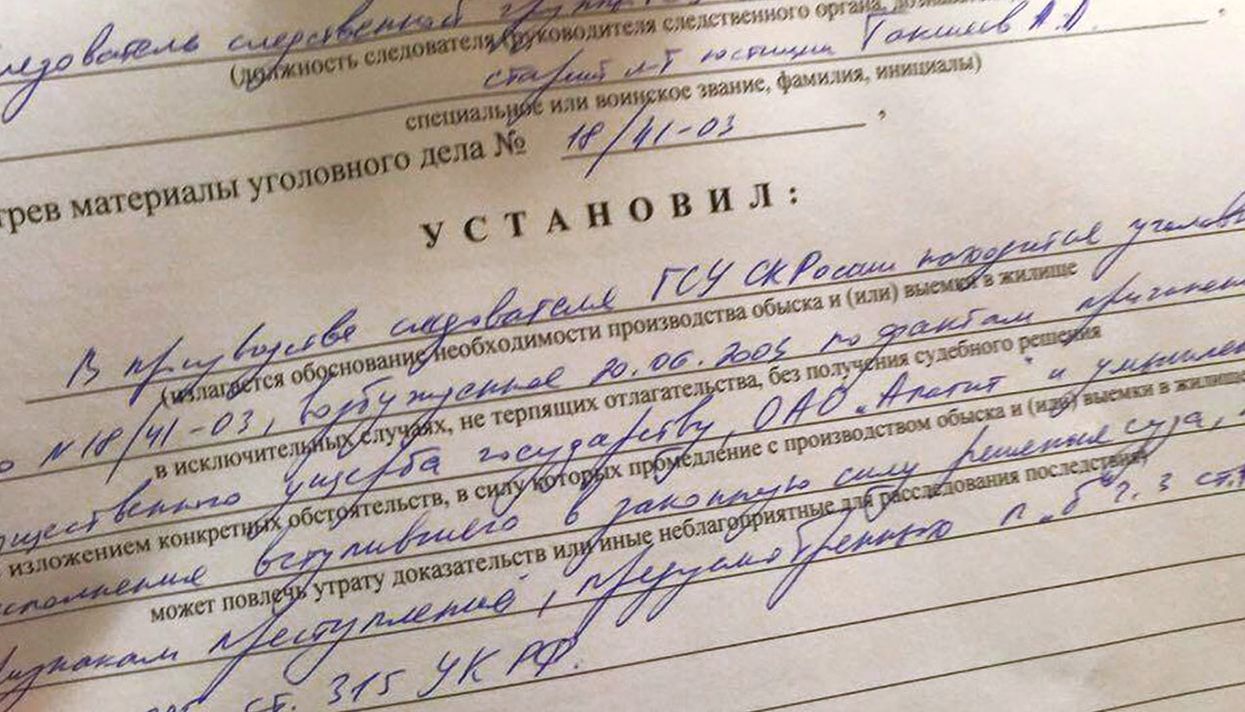 следователь следственной группы
(должность следователя (руководителя следственного органа,
старший л-т юстиции А.А.
специальное или воинское звание, фамилия, инициалы)
материалы уголовного дела № 18/41-03 ,
УСТАНОВИЛ:
В производстве следователя ГСУ СК России находится уголовн
(излагается обоснование необходимости производства обыска и (или) выемки в жилище
о №18/41-03, возбужденное 20.06.2003 по фактам причинен
в исключительных случаях, не терпящих отлагательства, без получения судебного решения
ущественного ущерба государству, ОАО „Апатит" и умышлен
изложением конкретных обстоятельств, в силу которых промедление с производством обыска и (или) выемки в жилище
исполнения вступившего в законную силу решения суда,
может повлечь утрату доказательств или иные неблагоприятные для расследования последствия)
признакам преступлений, предусмотренных п. „б" ч. 3 ст.
ст. 315 УК РФ.